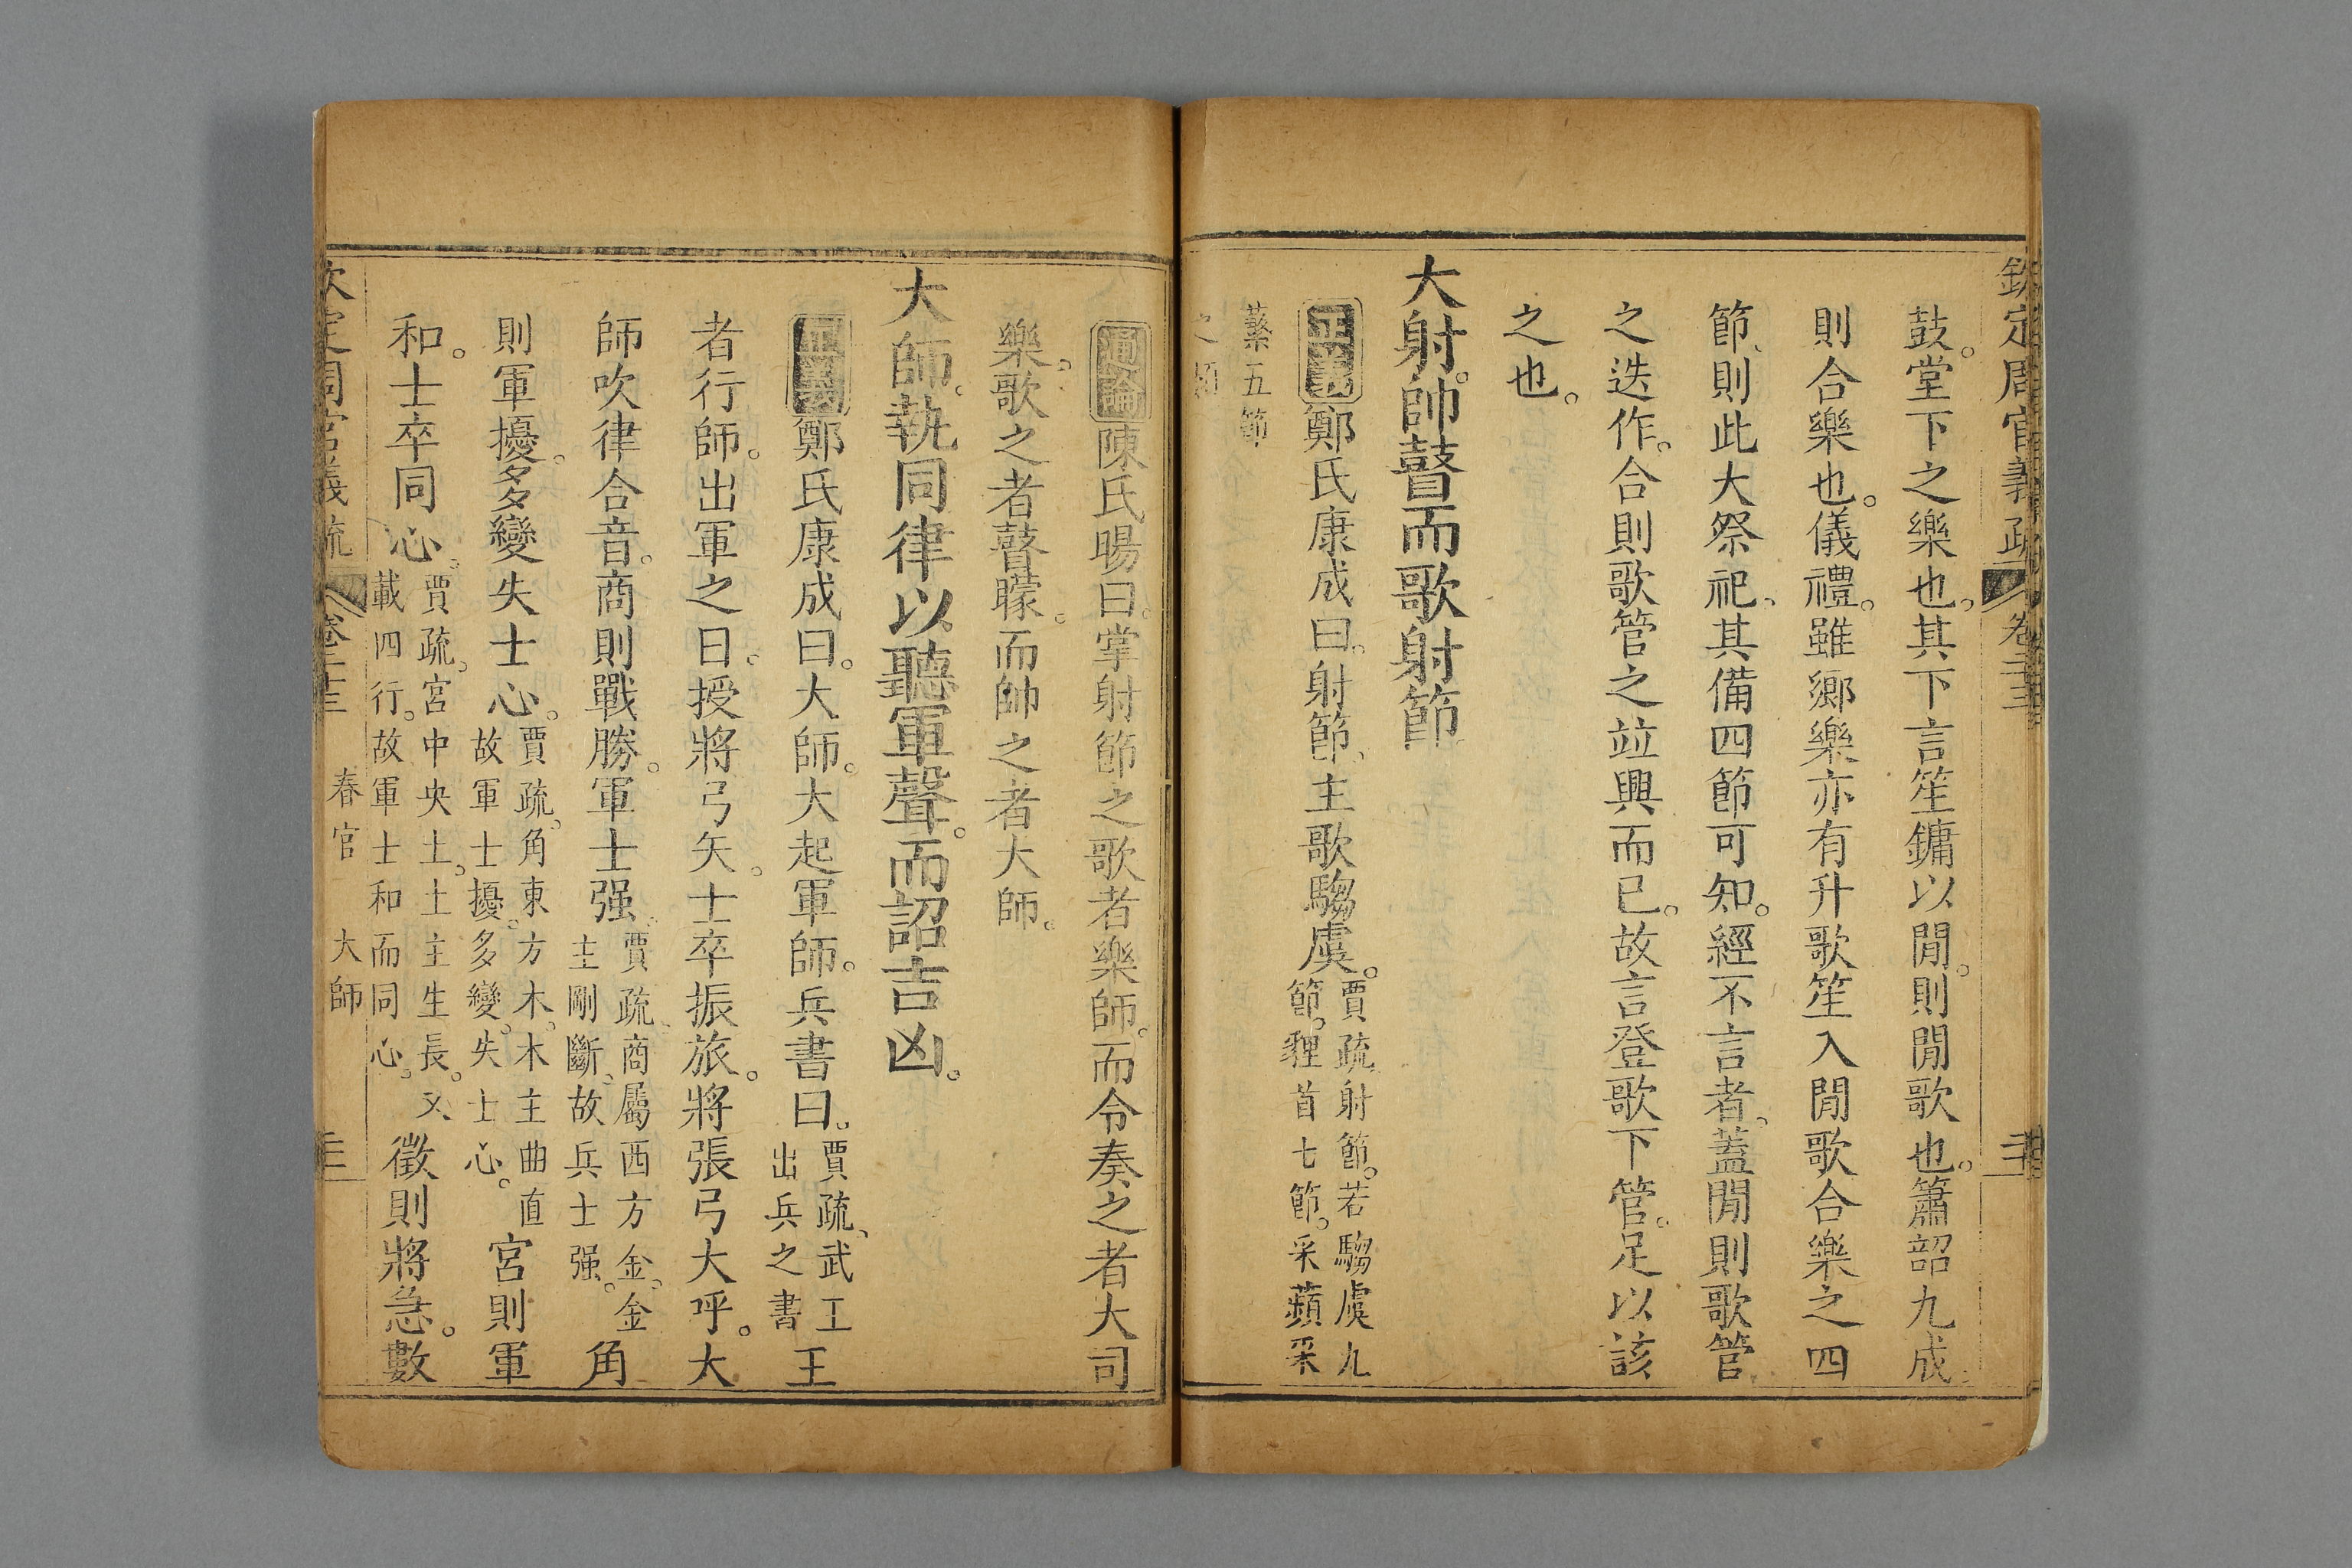 欽定周官義疏 卷二十三
鼓。堂下之樂也。其下言笙鏞以閒。則閒歌也。簫韶九成。
則合樂也。儀禮。雖鄉樂亦有升歌笙入閒歌合樂之四
節、則此大祭祀。其備四節可知。經不言者。蓋閒則歌管
之迭作。合則歌管之竝興而已。故言登歌下管。足以該
之也。
大射。帥瞽而歌射節。
正義鄭氏康成曰。射節、主歌騶虞。賈疏射節。若騶虞九
節。貍首七節。采蘋采
蘩五節
之類
通論陳氏暘曰。掌射節之歌者樂師。而令奏之者大司
樂。歌之者瞽矇。而帥之者大師。
大師。執同律以聽軍聲。而詔吉凶。
正義鄭氏康成曰。大師。大起軍師。兵書曰。賈疏、武王
出兵之書
者行師。出軍之日。授將弓矢。士卒振旅。將張弓大呼。大
師吹律合音。商則戰勝。軍士强。賈疏、商屬西方金。金
主剛斷。故兵士强。角
則軍擾。多變失士心。賈疏。角東方木。木主曲直
故軍士擾。多變。失士心。宮則軍
和。士卒同心。賈疏。宮中央土。土主生長。又
載四行。故軍士和而同心。徵則將急。數
欽定周官義疏 卷二十三 春官 大師